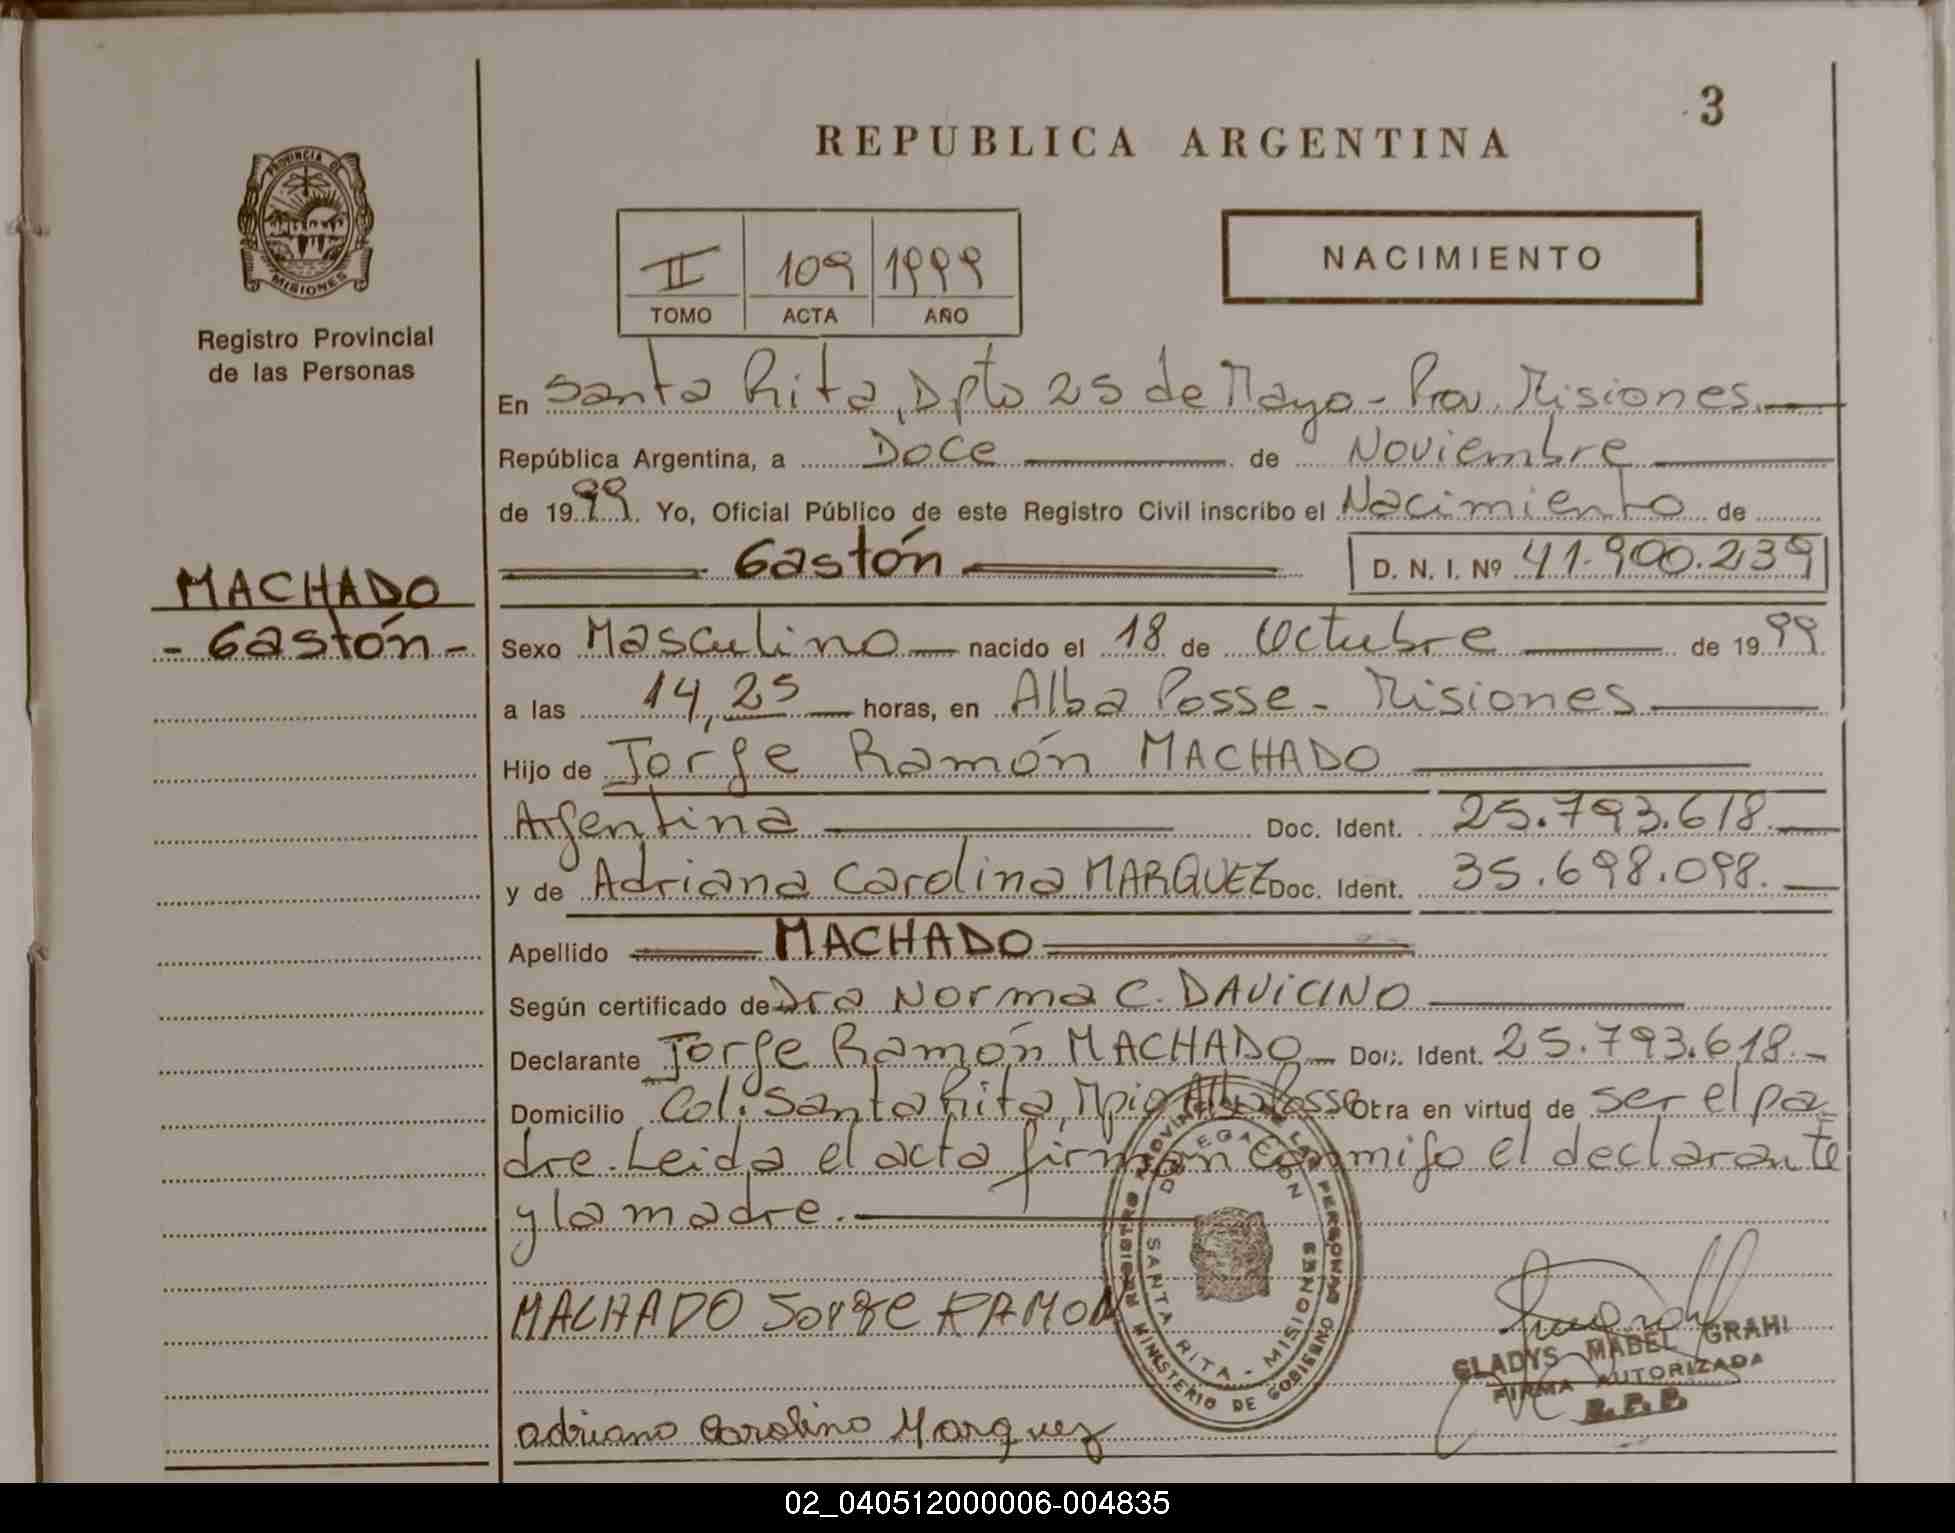 3
REPUBLICA ARGENTINA
PROVINCIA DE
MISIONES
Registro Provincial
de las Personas
II 109 1999
TOMO ACTA AÑO
NACIMIENTO
En Santa Rita, Dpto 25 de Mayo - Prov. Misiones.
República Argentina, a Doce de Noviembre
de 1999. Yo, Oficial Público de este Registro Civil inscribo el Nacimiento de
Gastón D. N. I. Nº 41.900.239
MACHADO
- Gastón -
Sexo Masculino nacido el 18 de Octubre de 1999
a las 14,25 horas, en Alba Posse - Misiones
Hijo de Jorge Ramón MACHADO
Argentina Doc. Ident. 25.793.618.
y de Adriana Carolina MARQUEZ Doc. Ident. 35.698.098.
Apellido MACHADO
Según certificado de Dra Norma C. DAVICINO
Declarante Jorge Ramón MACHADO Doc. Ident. 25.793.618.-
Domicilio Col. Santa Rita, Mpio Alba Posse Obra en virtud de ser el pa-
dre. Leida el acta firman conmigo el declarante
y la madre.
MACHADO Jorge RAMON
REGISTRO PROVINCIAL DE LAS PERSONAS
MINISTERIO DE GOBIERNO
DELEGACION
SANTA RITA - MISIONES
GLADYS MABEL GRAHL
FIRMA AUTORIZADA
R.P.P.
adriana Carolina Marquez
02_040512000006-004835